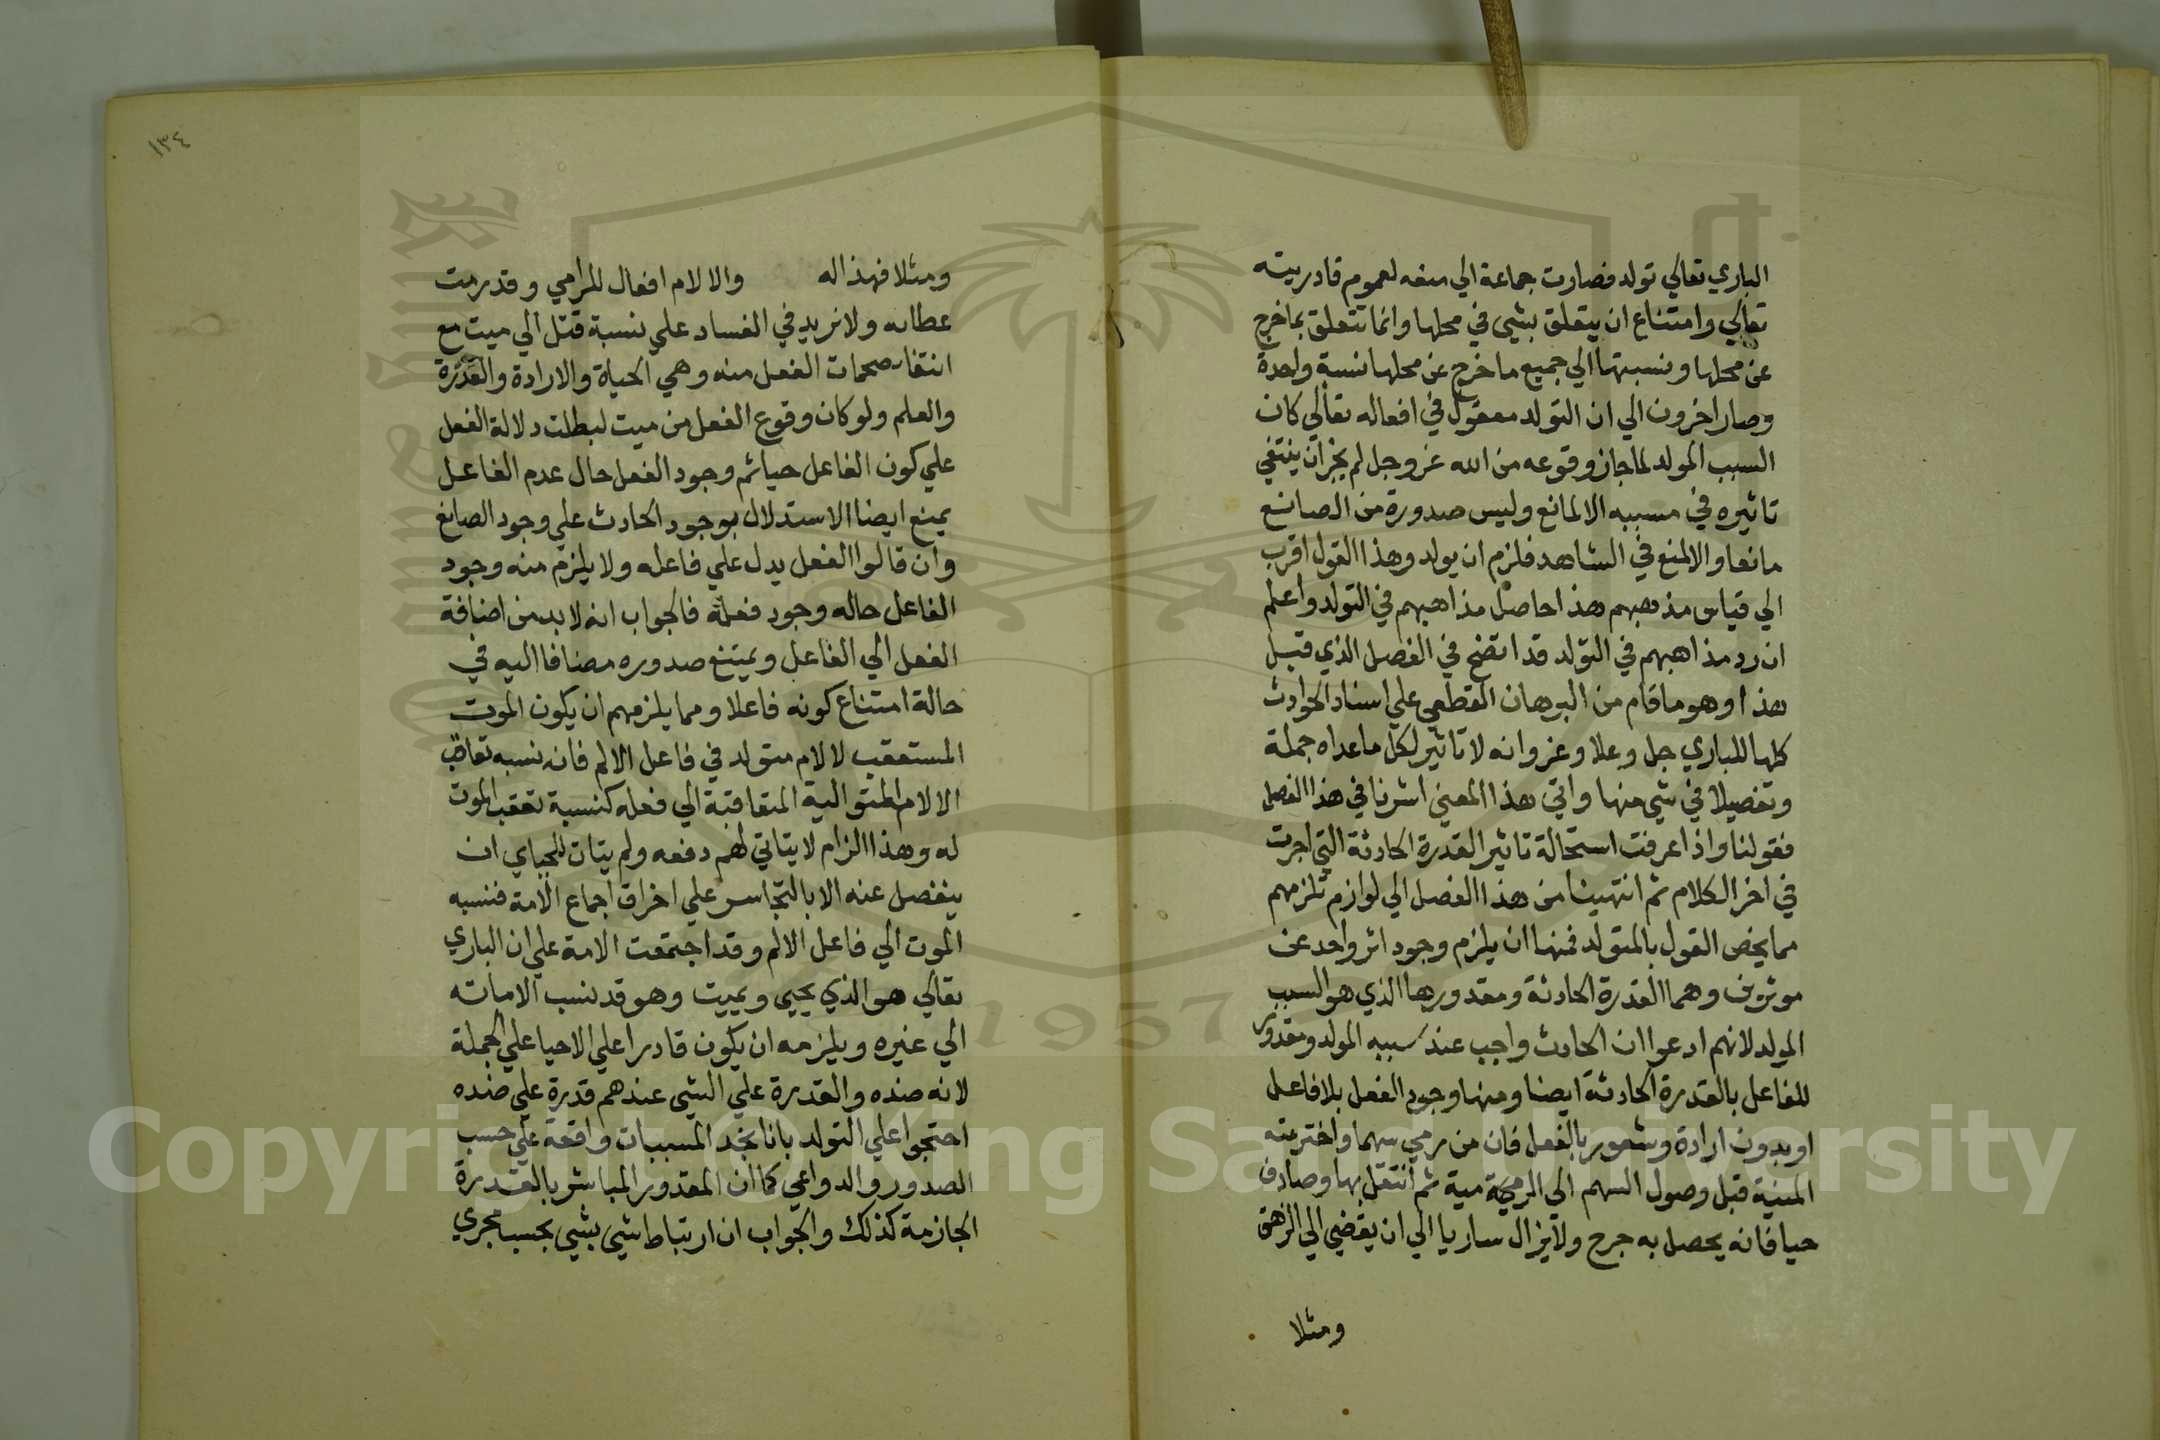 الباري تعالي تولد فصارت جماعة الي منعه لعموم قادريته
تعالي وامتناع ان يتعلق بشي في محلها وانما تتعلق بما خرج
عن محلها ونسبتها الي جميع ما خرج عن محلها نسبة واحدة
وصار اخرون الي ان التولد معقول في افعاله تعالي كان
السبب المولد لما جاز وقوعه من الله عز وجل لم يجز ان ينتفي
تاثيره في مسببه الا لمانع وليس صدورة من الصانع
مانعا والا لمنع في الشاهد فلزم ان يولد وهذا القول اقرب
الي قياس مذهبهم هذا حاصل مذاهبهم في التولد واعلم
ان رد مذاهبهم في التولد قد اتضح في الفصل الذي قبل
هذا وهو ما قام من البرهان القطعي علي اسناد الحوادث
كلها للباري جل وعلا وعز وانه لا تاثير لكل ما عداه جملة
وتفصيلا في شي منها واتي هذا المعني اشرنا في هذا الفصل
فقولنا واذا عرفت استحالة تاثير القدرة الحادثة التي اجرت
في اخر الكلام ثم انتهينا من هذا الفصل الي لوازم تلزمهم
مما يخص القول بالمتولد فمنها ان يلزم وجود اثر واحد عن
موثرين وهما القدرة الحادثة ومقدورها الذي هو السبب
المولد لانهم ادعوا ان الحادث واجب عند سببه المولد ومقدور
للفاعل بالقدرة الحادثة ايضا ومنها وجود الفعل بلا فاعل
او بدون ارادة وشعور بالفعل فان من رمي سهما واخترمته
المنية قبل وصول السهم الي الرمية مية ثم انتقل بها وصادف
حيا فانه يحصل به جرح ولا يزال ساريا الي ان يقضي الي الزهق
ومثلا
١٣٤
ومثلا فهذا له والالام افعال للرامي وقد رمت
عظامه ولا نريد في الفساد علي نسبة قتل الي ميت مع
انتفا صحمات الفعل منه وهي الحياة والارادة والقدرة
والعلم ولو كان وقوع الفعل من ميت لبطلت دلالة الفعل
علي كون الفاعل حيا ثم وجود الفعل حال عدم الفاعل
يمنع ايضا الاستدلال بوجود الحادث علي وجود الصانع
وان قالوا الفعل يدل علي فاعله ولا يلزم منه وجود
الفاعل حاله وجود فعله فالجواب انه لا بد من اضافة
الفعل الي الفاعل ويمتنع صدوره مضافا اليه في
حالة امتناع كونه فاعلا ومما يلزمهم ان يكون الموت
المستعقب لالام متولد في فاعل الالم فان نسبه تعاقب
الالام المتوالية المتعاقبة الي فعله كنسبة تعقب الموت
له وهذا الزام لا يتاتي لهم دفعه ولم يتات للجباي ان
ينفصل عنه الا بالتجاسر علي اخراق اجماع الامة فنسبه
الموت الي فاعل الالم وقد اجتمعت الامة علي ان الباري
تعالي هو الذي يحيي ويميت وهو قد نسب الاماته
الي غيره ويلزمه ان يكون قادرا علي الاحيا علي الجملة
لانه ضده والقدرة علي الشي عندهم قدرة علي ضده
احتجوا علي التولد بانا نجد المسببات واقعة علي حسب
الصدور والدواعي كما ان المقدور المباشر بالقدرة
الجازمة كذلك والجواب ان ارتباط شي بشي بحسب مجري
Copyright © King Saud University
1957